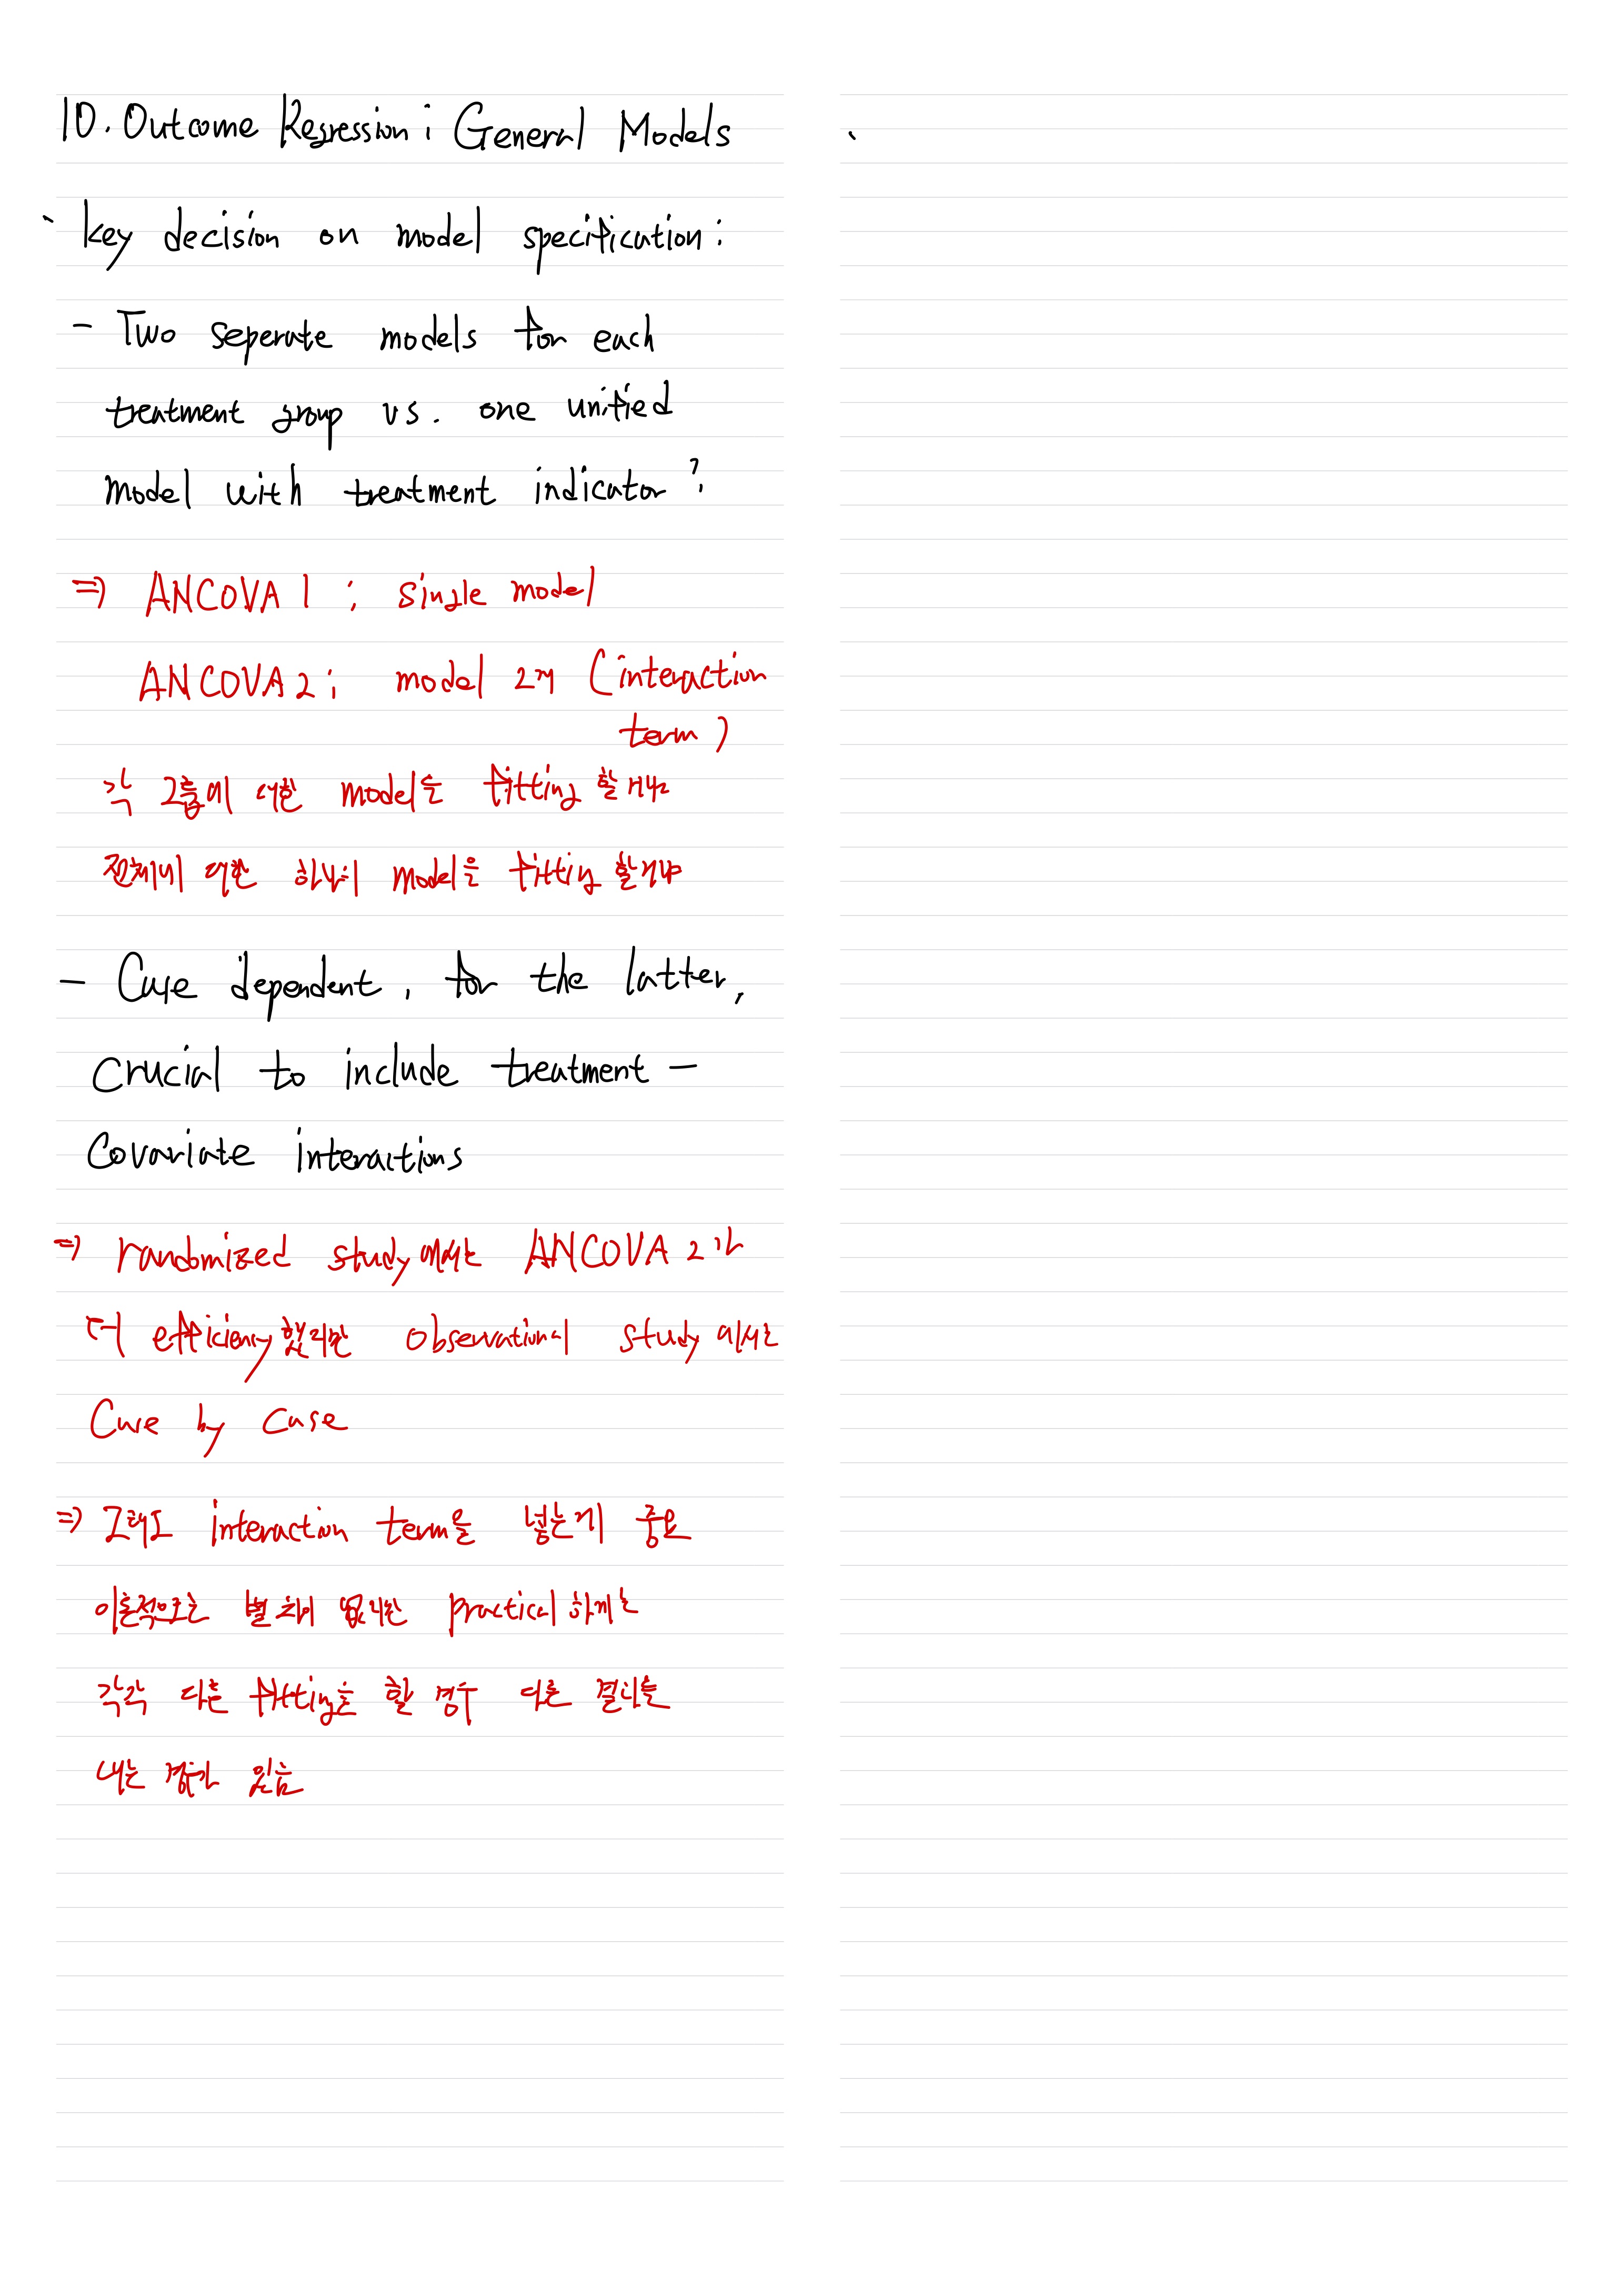 10. Outcome Regression : General Models
· key decision on model specification :
- Two seperate models for each
treatment group vs. one unified
model with treatment indicator?
⇒ ANCOVA 1 : single model
ANCOVA 2 : model 2개 (interaction
term)
각 그룹에 대한 model을 fitting 할거냐
전체에 대한 하나의 model을 fitting 할거냐
- Case dependent, for the latter,
crucial to include treatment -
Covariate interactions
⇒ randomized study에서는 ANCOVA 2가
더 efficiency했지만 observational study 에서는
Case by case
⇒ 그래도 interaction term을 넣는게 중요
이론적으로는 별 차이 없지만 practical 하게는
각각 다른 fitting을 할 경우 다른 결과를
내는 경우가 있음